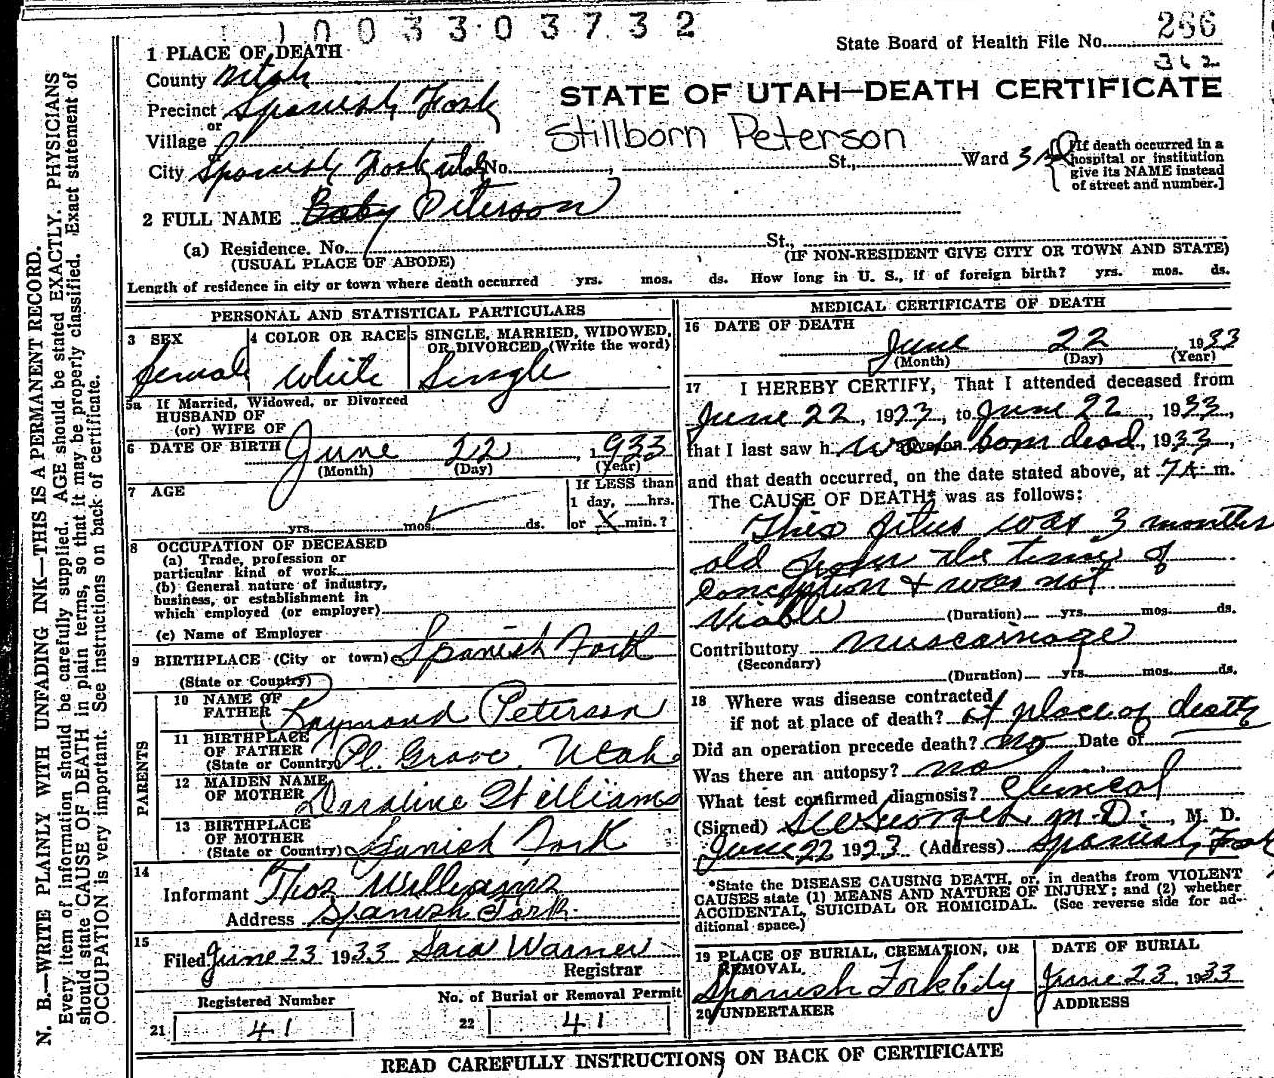 1003303732
State Board of Health File No. 266
362
1 PLACE OF DEATH
County Utah
STATE OF UTAH—DEATH CERTIFICATE
Precinct Spanish Fork
or
Village
Stillborn Peterson
City Spanish Fork Utah No. St., Ward
[If death occurred in a hospital or institution give its NAME instead of street and number.]
2 FULL NAME Baby Peterson
(a) Residence. No. St.,
(USUAL PLACE OF ABODE) (IF NON-RESIDENT GIVE CITY OR TOWN AND STATE)
Length of residence in city or town where death occurred yrs. mos. ds. How long in U. S., if of foreign birth? yrs. mos. ds.
PERSONAL AND STATISTICAL PARTICULARS
3 SEX 4 COLOR OR RACE 5 SINGLE, MARRIED, WIDOWED, OR DIVORCED (Write the word)
female White Single
5a If Married, Widowed, or Divorced
HUSBAND OF
(or) WIFE OF
6 DATE OF BIRTH June 22, 1933
(Month) (Day) (Year)
7 AGE
If LESS than
1 day, hrs.
yrs. mos. ds. or X min.?
8 OCCUPATION OF DECEASED
(a) Trade, profession or
particular kind of work
(b) General nature of industry,
business, or establishment in
which employed (or employer)
(c) Name of Employer
9 BIRTHPLACE (City or town) Spanish Fork
(State or Country)
PARENTS
10 NAME OF FATHER Raymond Peterson
11 BIRTHPLACE OF FATHER (State or Country) Pl. Grove, Utah
12 MAIDEN NAME OF MOTHER Williams
13 BIRTHPLACE OF MOTHER (State or Country) Spanish Fork
14
Informant Thos Williams
Address Spanish Fork
15
Filed June 23 1933 Sara Warner
Registrar
Registered Number No. of Burial or Removal Permit
21 41 22 41
MEDICAL CERTIFICATE OF DEATH
16 DATE OF DEATH
June 22 1933
(Month) (Day) (Year)
17 I HEREBY CERTIFY, That I attended deceased from
June 22, 1933, to June 22, 1933,
that I last saw h was born dead, 1933,
and that death occurred, on the date stated above, at 7A m.
The CAUSE OF DEATH* was as follows:
This fetus was 3 months
old from the time of
conception & was not
viable (Duration) yrs. mos. ds.
Contributory miscarriage
(Secondary)
(Duration) yrs. mos. ds.
18 Where was disease contracted
if not at place of death? at place of death
Did an operation precede death? no Date of
Was there an autopsy? no
What test confirmed diagnosis? Clinical
(Signed) M.D., M. D.
June 22 1933 (Address) Spanish Fork
*State the DISEASE CAUSING DEATH, or, in deaths from VIOLENT
CAUSES state (1) MEANS AND NATURE OF INJURY; and (2) whether
ACCIDENTAL, SUICIDAL OR HOMICIDAL. (See reverse side for ad-
ditional space.)
19 PLACE OF BURIAL, CREMATION, OR REMOVAL DATE OF BURIAL
Spanish Fork City June 23 1933
20 UNDERTAKER ADDRESS
READ CAREFULLY INSTRUCTIONS ON BACK OF CERTIFICATE
N. B.—WRITE PLAINLY WITH UNFADING INK—THIS IS A PERMANENT RECORD.
Every item of information should be carefully supplied. AGE should be stated EXACTLY. PHYSICIANS
should state CAUSE OF DEATH in plain terms, so that it may be properly classified. Exact statement of
OCCUPATION is very important. See instructions on back of certificate.